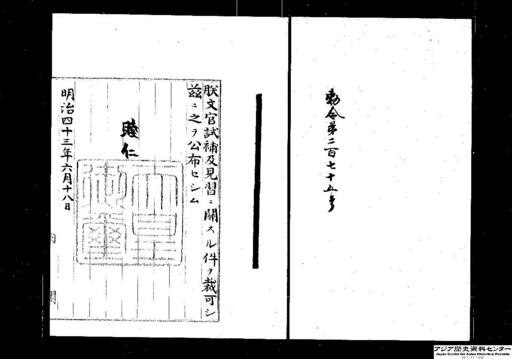 勅令第二百七十五号
朕文官試補及見習ニ関スル件ヲ裁可シ
茲ニ之ヲ公布セシム
睦仁
天皇御璽
明治四十三年六月十八日
内閣
アジア歴史資料センター
Japan Center for Asian Historical Records